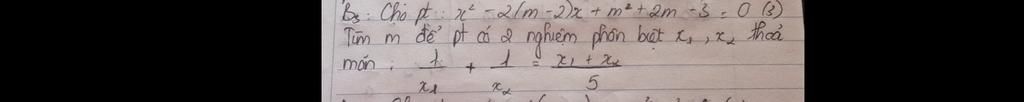 B3: Cho pt: x² - 2(m-2)x + m² + 2m - 3 = 0 (3)
Tìm m để pt có 2 nghiệm phân biệt x₁, x₂ thoả
mãn: 1/x₁ + 1/x₂ = (x₁ + x₂)/5